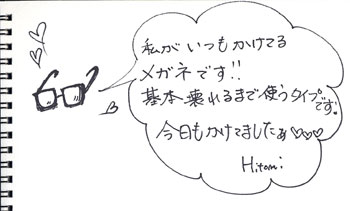 私がいつもかけてる
メガネです!!
基本壊れるまで使うタイプです!
今日もかけてましたぁ♡♡♡
Hitomi